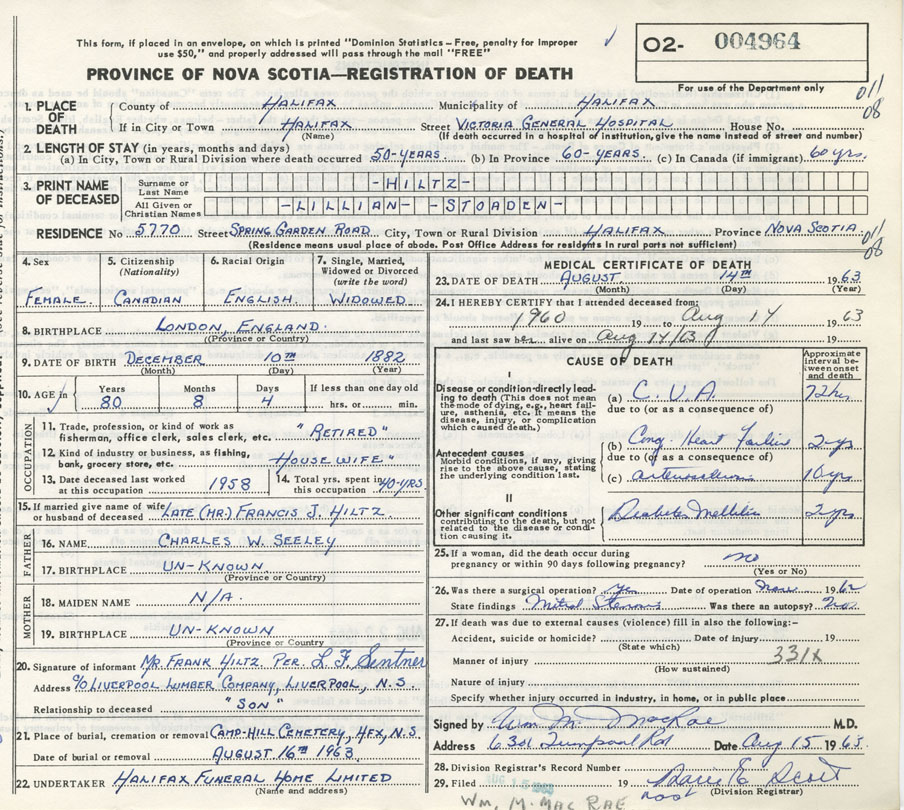 This form, if placed in an envelope, on which is printed "Dominion Statistics – Free, penalty for improper
use $50," and properly addressed will pass through the mail "FREE"
PROVINCE OF NOVA SCOTIA—REGISTRATION OF DEATH
O2- 004964
For use of the Department only
011
08
1. PLACE OF DEATH
County of HALIFAX Municipality of HALIFAX
If in City or Town HALIFAX Street VICTORIA GENERAL HOSPITAL House No.
(Name) (If death occurred in a hospital of institution, give the name instead of street and number)
2. LENGTH OF STAY (in years, months and days)
(a) In City, Town or Rural Division where death occurred 50-YEARS. (b) In Province 60-YEARS. (c) In Canada (if immigrant) 60 yrs.
3. PRINT NAME OF DECEASED
Surname or Last Name -HILTZ-
All Given or Christian Names -LILLIAN- -STOADEN-
RESIDENCE No 5770 Street SPRING GARDEN ROAD City, Town or Rural Division HALIFAX Province NOVA SCOTIA
(Residence means usual place of abode. Post Office Address for residents in rural parts not sufficient)
011
08
4. Sex FEMALE.
5. Citizenship (Nationality) CANADIAN
6. Racial Origin ENGLISH.
7. Single, Married, Widowed or Divorced (write the word) WIDOWED.
8. BIRTHPLACE LONDON, ENGLAND.
(Province or Country)
9. DATE OF BIRTH DECEMBER 10TH 1882
(Month) (Day) (Year)
10. AGE in Years 80 Months 8 Days 4 If less than one day old hrs. or min.
OCCUPATION
11. Trade, profession, or kind of work as fisherman, office clerk, sales clerk, etc. "RETIRED"
12. Kind of industry or business, as fishing, bank, grocery store, etc. "HOUSE WIFE"
13. Date deceased last worked at this occupation 1958
14. Total yrs. spent in this occupation 40-YRS.
15. If married give name of wife or husband of deceased LATE (MR.) FRANCIS J. HILTZ
FATHER
16. NAME CHARLES W. SEELEY
17. BIRTHPLACE UN-KNOWN
(Province or Country)
MOTHER
18. MAIDEN NAME N/A.
19. BIRTHPLACE UN-KNOWN
(Province or Country)
20. Signature of informant MR. FRANK HILTZ. PER. L. F.
Address %LIVERPOOL LUMBER COMPANY, LIVERPOOL, N.S.
Relationship to deceased "SON"
21. Place of burial, cremation or removal CAMP-HILL CEMETERY, HFX, N.S.
Date of burial or removal AUGUST 16TH 1963
22. UNDERTAKER HALIFAX FUNERAL HOME LIMITED
(Name and address)
MEDICAL CERTIFICATE OF DEATH
23. DATE OF DEATH AUGUST 14TH 1963
(Month) (Day) (Year)
24. I HEREBY CERTIFY that I attended deceased from:
1960 19 to Aug 14 19 63
and last saw her alive on Aug 14/63 19
CAUSE OF DEATH
Approximate interval between onset and death
I
Disease or condition directly leading to death (This does not mean the mode of dying, e.g., heart failure, asthenia, etc. It means the disease, injury, or complication which caused death.)
(a) C.V.A. 72 hrs
due to (or as a consequence of)
Antecedent causes
Morbid conditions, if any, giving rise to the above cause, stating the underlying condition last.
(b) Cong Heart Failure 2 yrs
due to (or as a consequence of)
(c) 10 yrs
II
Other significant conditions contributing to the death, but not related to the disease or condition causing it.
Diabetes Mellitus 2 yrs
25. If a woman, did the death occur during pregnancy or within 90 days following pregnancy? no
(Yes or No)
26. Was there a surgical operation? yes Date of operation 1962
State findings Mitral Stenosis Was there an autopsy? no.
27. If death was due to external causes (violence) fill in also the following:–
Accident, suicide or homicide? Date of injury 19
(State which)
Manner of injury 331X
(How sustained)
Nature of injury
Specify whether injury occurred in industry, in home, or in public place
Signed by Wm. M. MacRae M.D.
Address Rd Date Aug 15 1963.
28. Division Registrar's Record Number
29. Filed AUG 15 1963 19 Scott
(Division Registrar)
WM. M. MAC RAE